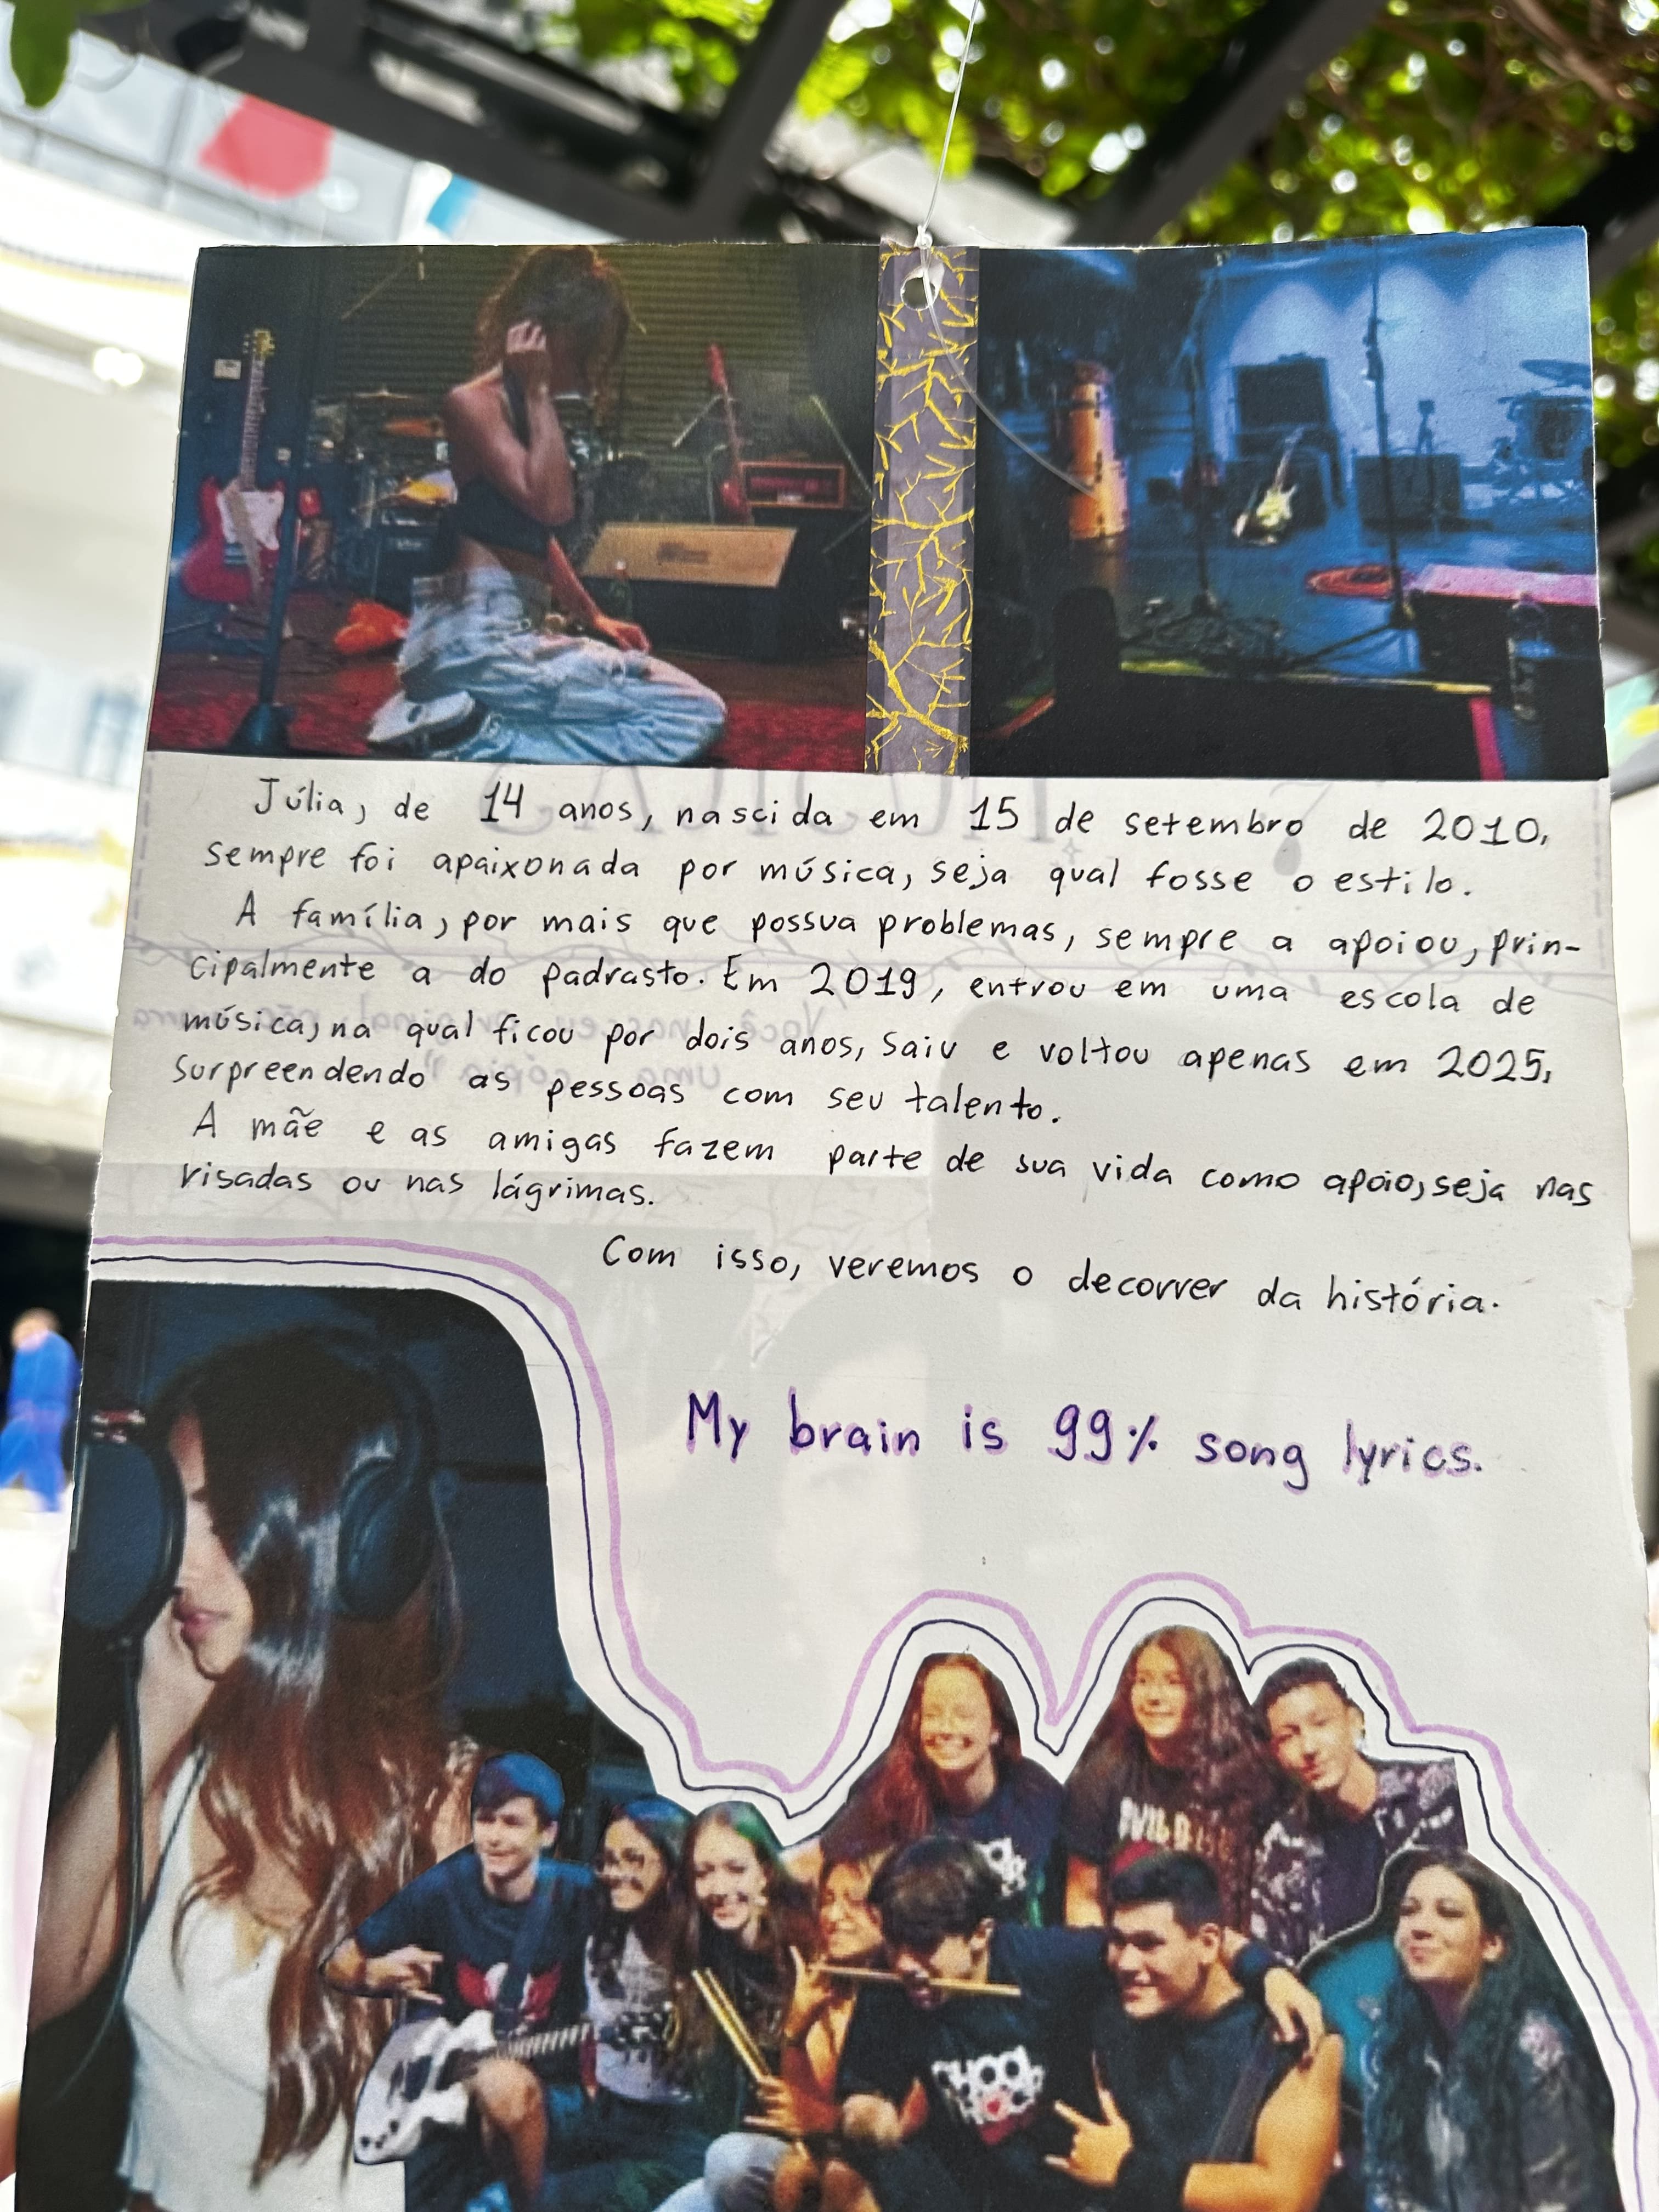 Júlia, de 14 anos, nascida em 15 de setembro de 2010,
sempre foi apaixonada por música, seja qual fosse o estilo.
A família, por mais que possua problemas, sempre a apoiou, prin-
cipalmente a do padrasto. Em 2019, entrou em uma escola de
música, na qual ficou por dois anos, saiu e voltou apenas em 2025,
surpreendendo as pessoas com seu talento.
A mãe e as amigas fazem parte de sua vida como apoio, seja nas
risadas ou nas lágrimas.
Com isso, veremos o decorrer da história.
My brain is 99% song lyrics.